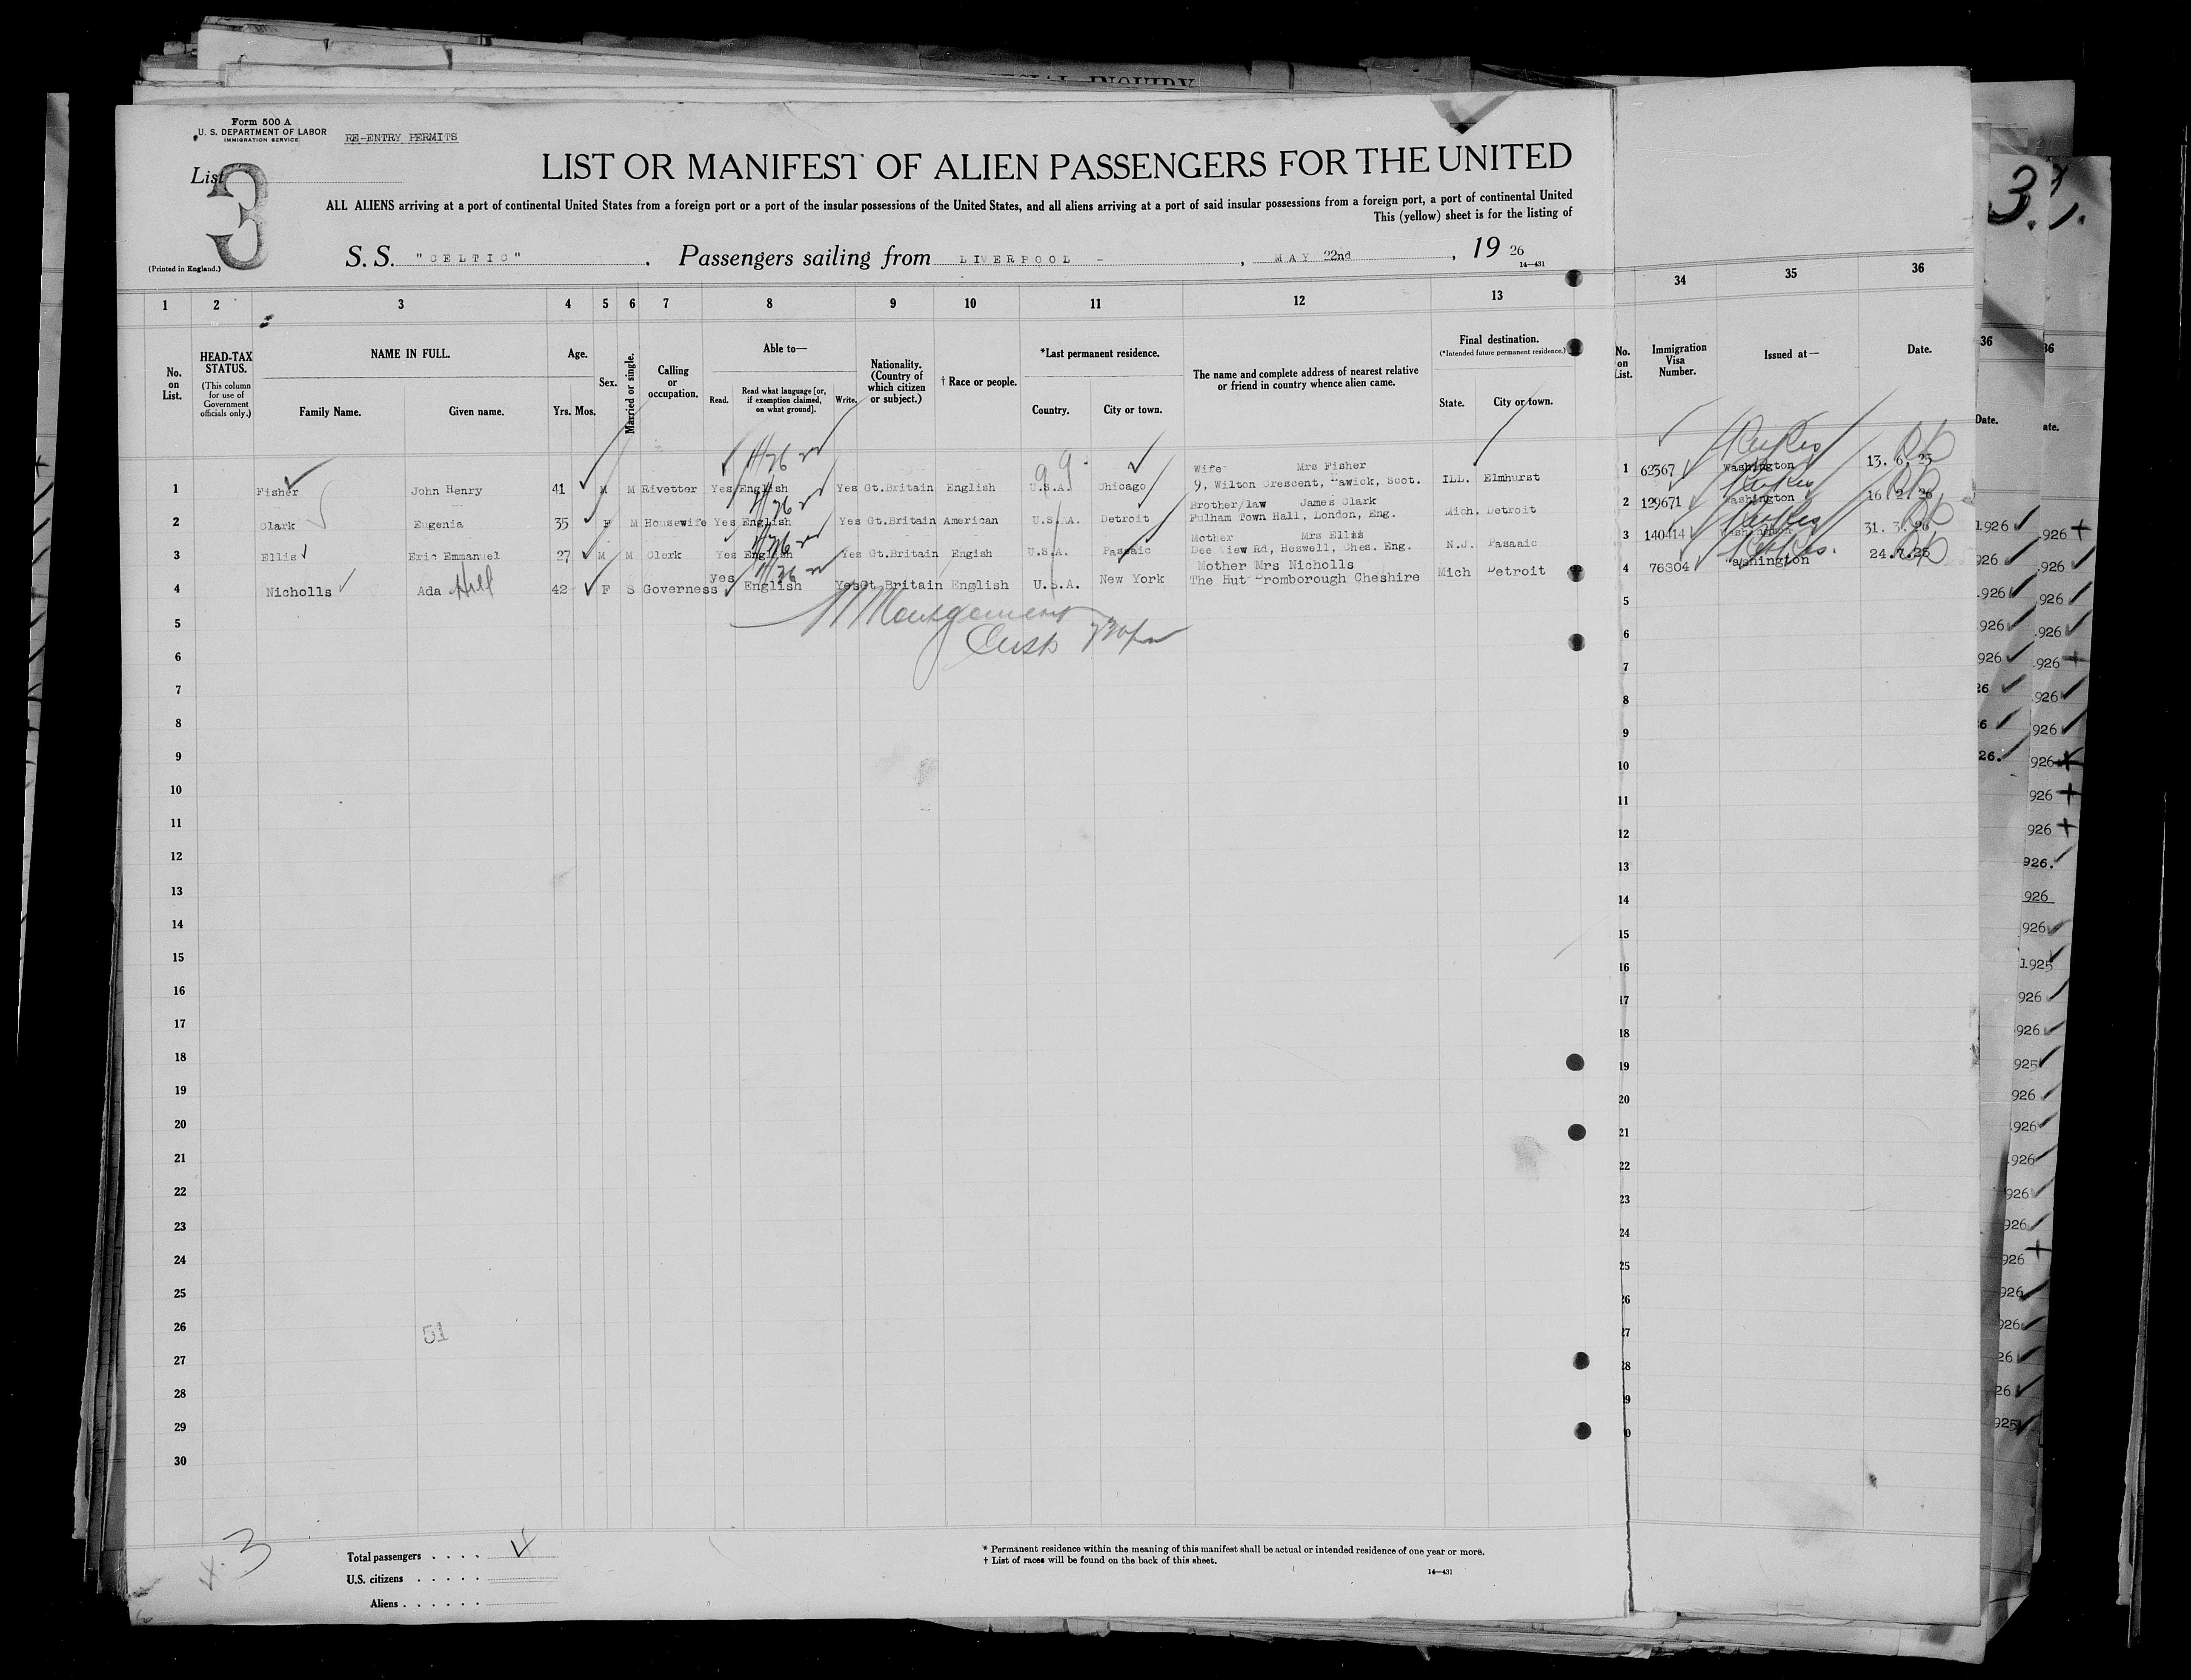 SPECIAL INQUIRY
Form 500 A
U. S. DEPARTMENT OF LABOR
IMMIGRATION SERVICE
RE-ENTRY PERMITS
List
3
LIST OR MANIFEST OF ALIEN PASSENGERS FOR THE UNITED
ALL ALIENS arriving at a port of continental United States from a foreign port or a port of the insular possessions of the United States, and all aliens arriving at a port of said insular possessions from a foreign port, a port of continental United
This (yellow) sheet is for the listing of
(Printed in England.)
S. S. "CELTIC". Passengers sailing from LIVERPOOL - , MAY 22nd, 19 26
14—431
1 2 3 4 5 6 7 8 9 10 11 12 13 34 35 36
No. on List.
HEAD-TAX STATUS.
(This column for use of Government officials only.)
NAME IN FULL.
Family Name. Given name.
Age.
Yrs. Mos.
Sex.
Married or single.
Calling or occupation.
Able to—
Read. Read what language [or, if exemption claimed, on what ground]. Write.
Nationality. (Country of which citizen or subject.)
† Race or people.
*Last permanent residence.
Country. City or town.
The name and complete address of nearest relative or friend in country whence alien came.
Final destination.
(*Intended future permanent residence.)
State. City or town.
No. on List.
Immigration Visa Number.
Issued at—
Date.
1 Fisher John Henry 41 M M Rivetter Yes English Yes Gt.Britain English U.S.A. Chicago Wife Mrs Fisher
9, Wilton Crescent, Hawick, Scot. ILL. Elmhurst 1 62367 Washington 13. 6. 25
2 Clark Eugenia 35 F M Housewife Yes English Yes Gt.Britain American U.S.A. Detroit Brother/law James Clark
Fulham Town Hall, London, Eng. Mich. Detroit 2 129671 Washington 16 2 26
3 Ellis Eric Emmanuel 27 M M Clerk Yes English Yes Gt.Britain Engish U.S.A. Passaic Mother Mrs Ellis
Dee View Rd, Heswell, Ches. Eng. N.J. Passaic 3 140414 Washington 31. 3. 26
4 Nicholls Ada 42 F S Governess yes English Yes Gt.Britain English U.S.A. New York Mother Mrs Nicholls
The Hut Bromborough Cheshire Mich Detroit 4 76304 Washington 24.7.25
5 5
6 6
7 7
8 8
9 9
10 10
11 11
12 12
13 13
14 14
15 15
16 16
17 17
18 18
19 19
20 20
21 21
22 22
23 23
24 24
25 25
26 51
27
28
29
30
3
Total passengers . . . . 4
U.S. citizens . . . . .
Aliens . . . . . .
* Permanent residence within the meaning of this manifest shall be actual or intended residence of one year or more.
† List of races will be found on the back of this sheet.
14—431